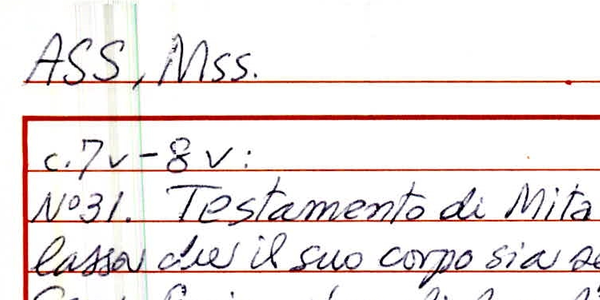 ASS, Mss.
c.7v-8v:
N°31. Testamento di Mita
lassa che il suo corpo sia se